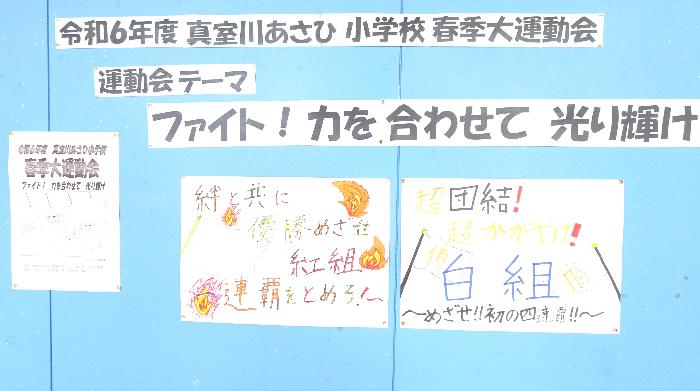 令和6年度 真室川あさひ小学校 春季大運動会
運動会テーマ
ファイト！力を合わせて 光り輝け
令和6年度 真室川あさひ小学校
春季大運動会
ファイト！ 力を合わせて 光り輝け
絆と共に
優勝めざせ
紅組
連覇をとめろ！〜
超団結！
超かがやけ！
白組
〜めざせ!!初の四連覇!!〜